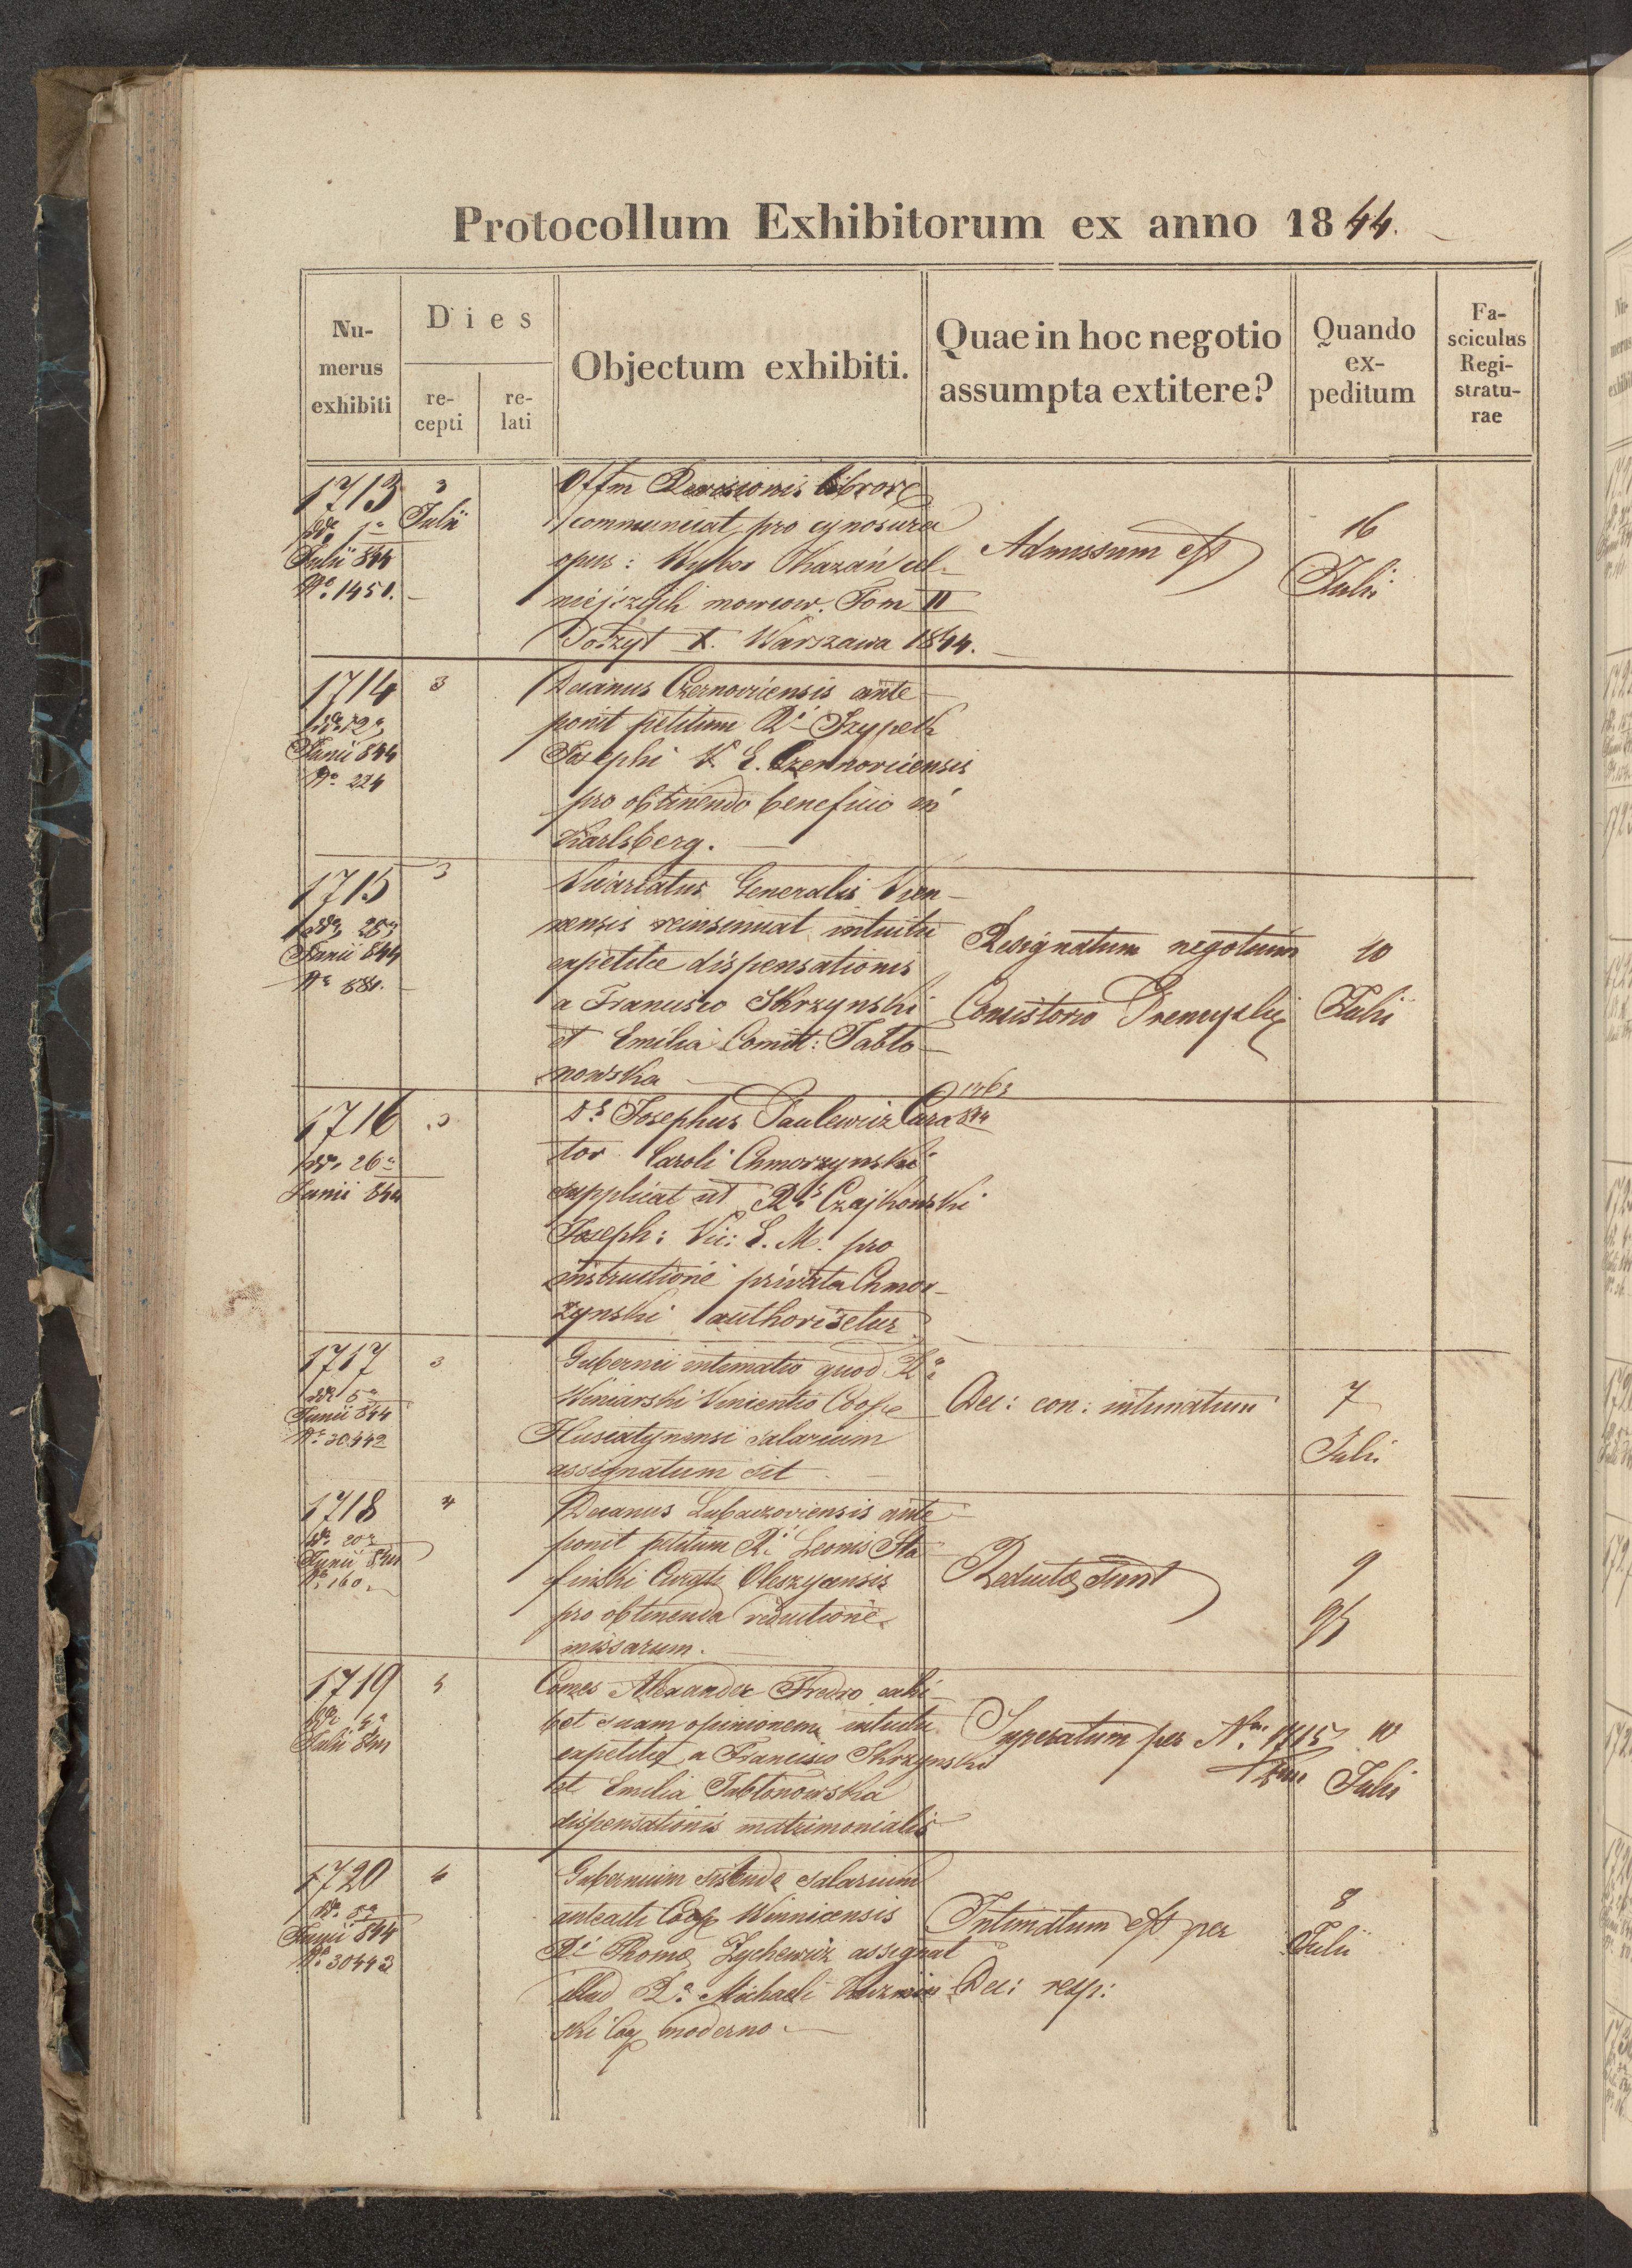 Protocollum Exhibitorum ex anno 1844.
Numerus exhibiti
Dies
recepti
relati
Objectum exhibiti.
Quae in hoc negotio assumpta extitere?
Quando expeditum
Fasciculus Registraturae
1713
3 Julii
dda 1a
Julii 844
No 1451.
Offm Revisionis libror
communicat pro cynosura
opus: Wybor Kazań cel-
niejszych mowcow. Tom II
Poszyt X. Warszawa 1844.
Admissum est
16
Julii
1714
3
Junii 844
No 224
Decanus Czernoviciensis ante
ponit petitum Ri Szypek
Josephi V. E. Czernoviciensis
pro obtinendo beneficio in
Karlsberg.
1715
3
Junii 844
No 881.
Vicariatus Generalis Vien-
nensis reinsinuat intuitu
expetitae dispensationis
a Francisco Skrzynski
et Emilia Comit: Jablo-
nowska
Resignatum negotium
Consistorio Premysliae
10
Julii
1716
3
dda 26a
Junii 844
Ds Josephus Paulewicz Cura
tor Caroli Chmorzynski
supplicat ut Rs Czajkowski
Joseph: Vic: E. M. pro
instructione privata Chmor-
zynski authorisetur
1717
3
dda 5a
Junii 844
No 30442
Gubernii intimatio quod Ro
Winiarski Vincentio Coope
Husiatynensi salarium
assignatum sit
Dec: con: intimatum
7
Julii
1718
4
Junii 844
No 160
Decanus Lubaczoviensis ante
ponit petitum Ri Leonis Sta
finski Curati Oleszycensis
pro obtinenda reductione
missarum.
Reductae sunt
9
1719
5
Julii 844
Comes Alexander Fredro exhi-
bet suam opinionem intuitu
expetitae a Francisco Skrzynski
et Emilia Jablonowska
dispensationis matrimonialis
Superatum per Nm 1715
10
Julii
1720
Junii 844
No 30443
Gubernium sistendo salarium
anteacti Coop Winnicensis
Ri Thomae Zychewicz assignat
illud Ro Michaeli
ski Coop moderno
Intimatum est per
Dec: resp:
8
Julii